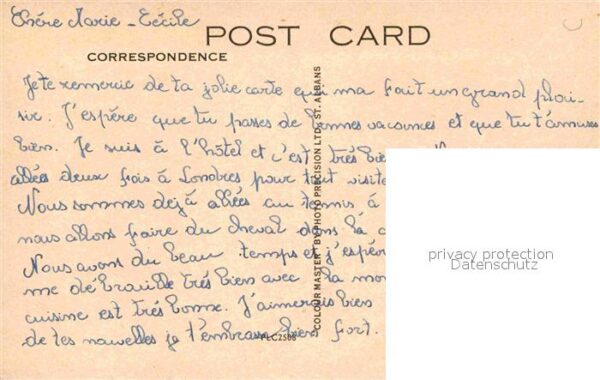 Chère Marie-Cécile
POST CARD
CORRESPONDENCE
Je te remercie de ta jolie carte qui ma fait un grand plai-
sir. J'espère que tu passes de bonnes vacances et que tu t'amuses
bien. Je suis à l'hôtel et c'est très bien
allées deux fois à Londres pour tout visite
Nous sommes dejà allées au tennis à
nous allons faire du cheval dans la
Nous avons du beau temps et j'espère
me débrouille très bien avec la mon
cuisine est très bonne. J'aimerais bien
de tes nouvelles je t'embrasse bien fort.
COLOUR MASTER BY PHOTO PRECISION LTD., ST. ALBANS
PLC2588
privacy protection
Datenschutz